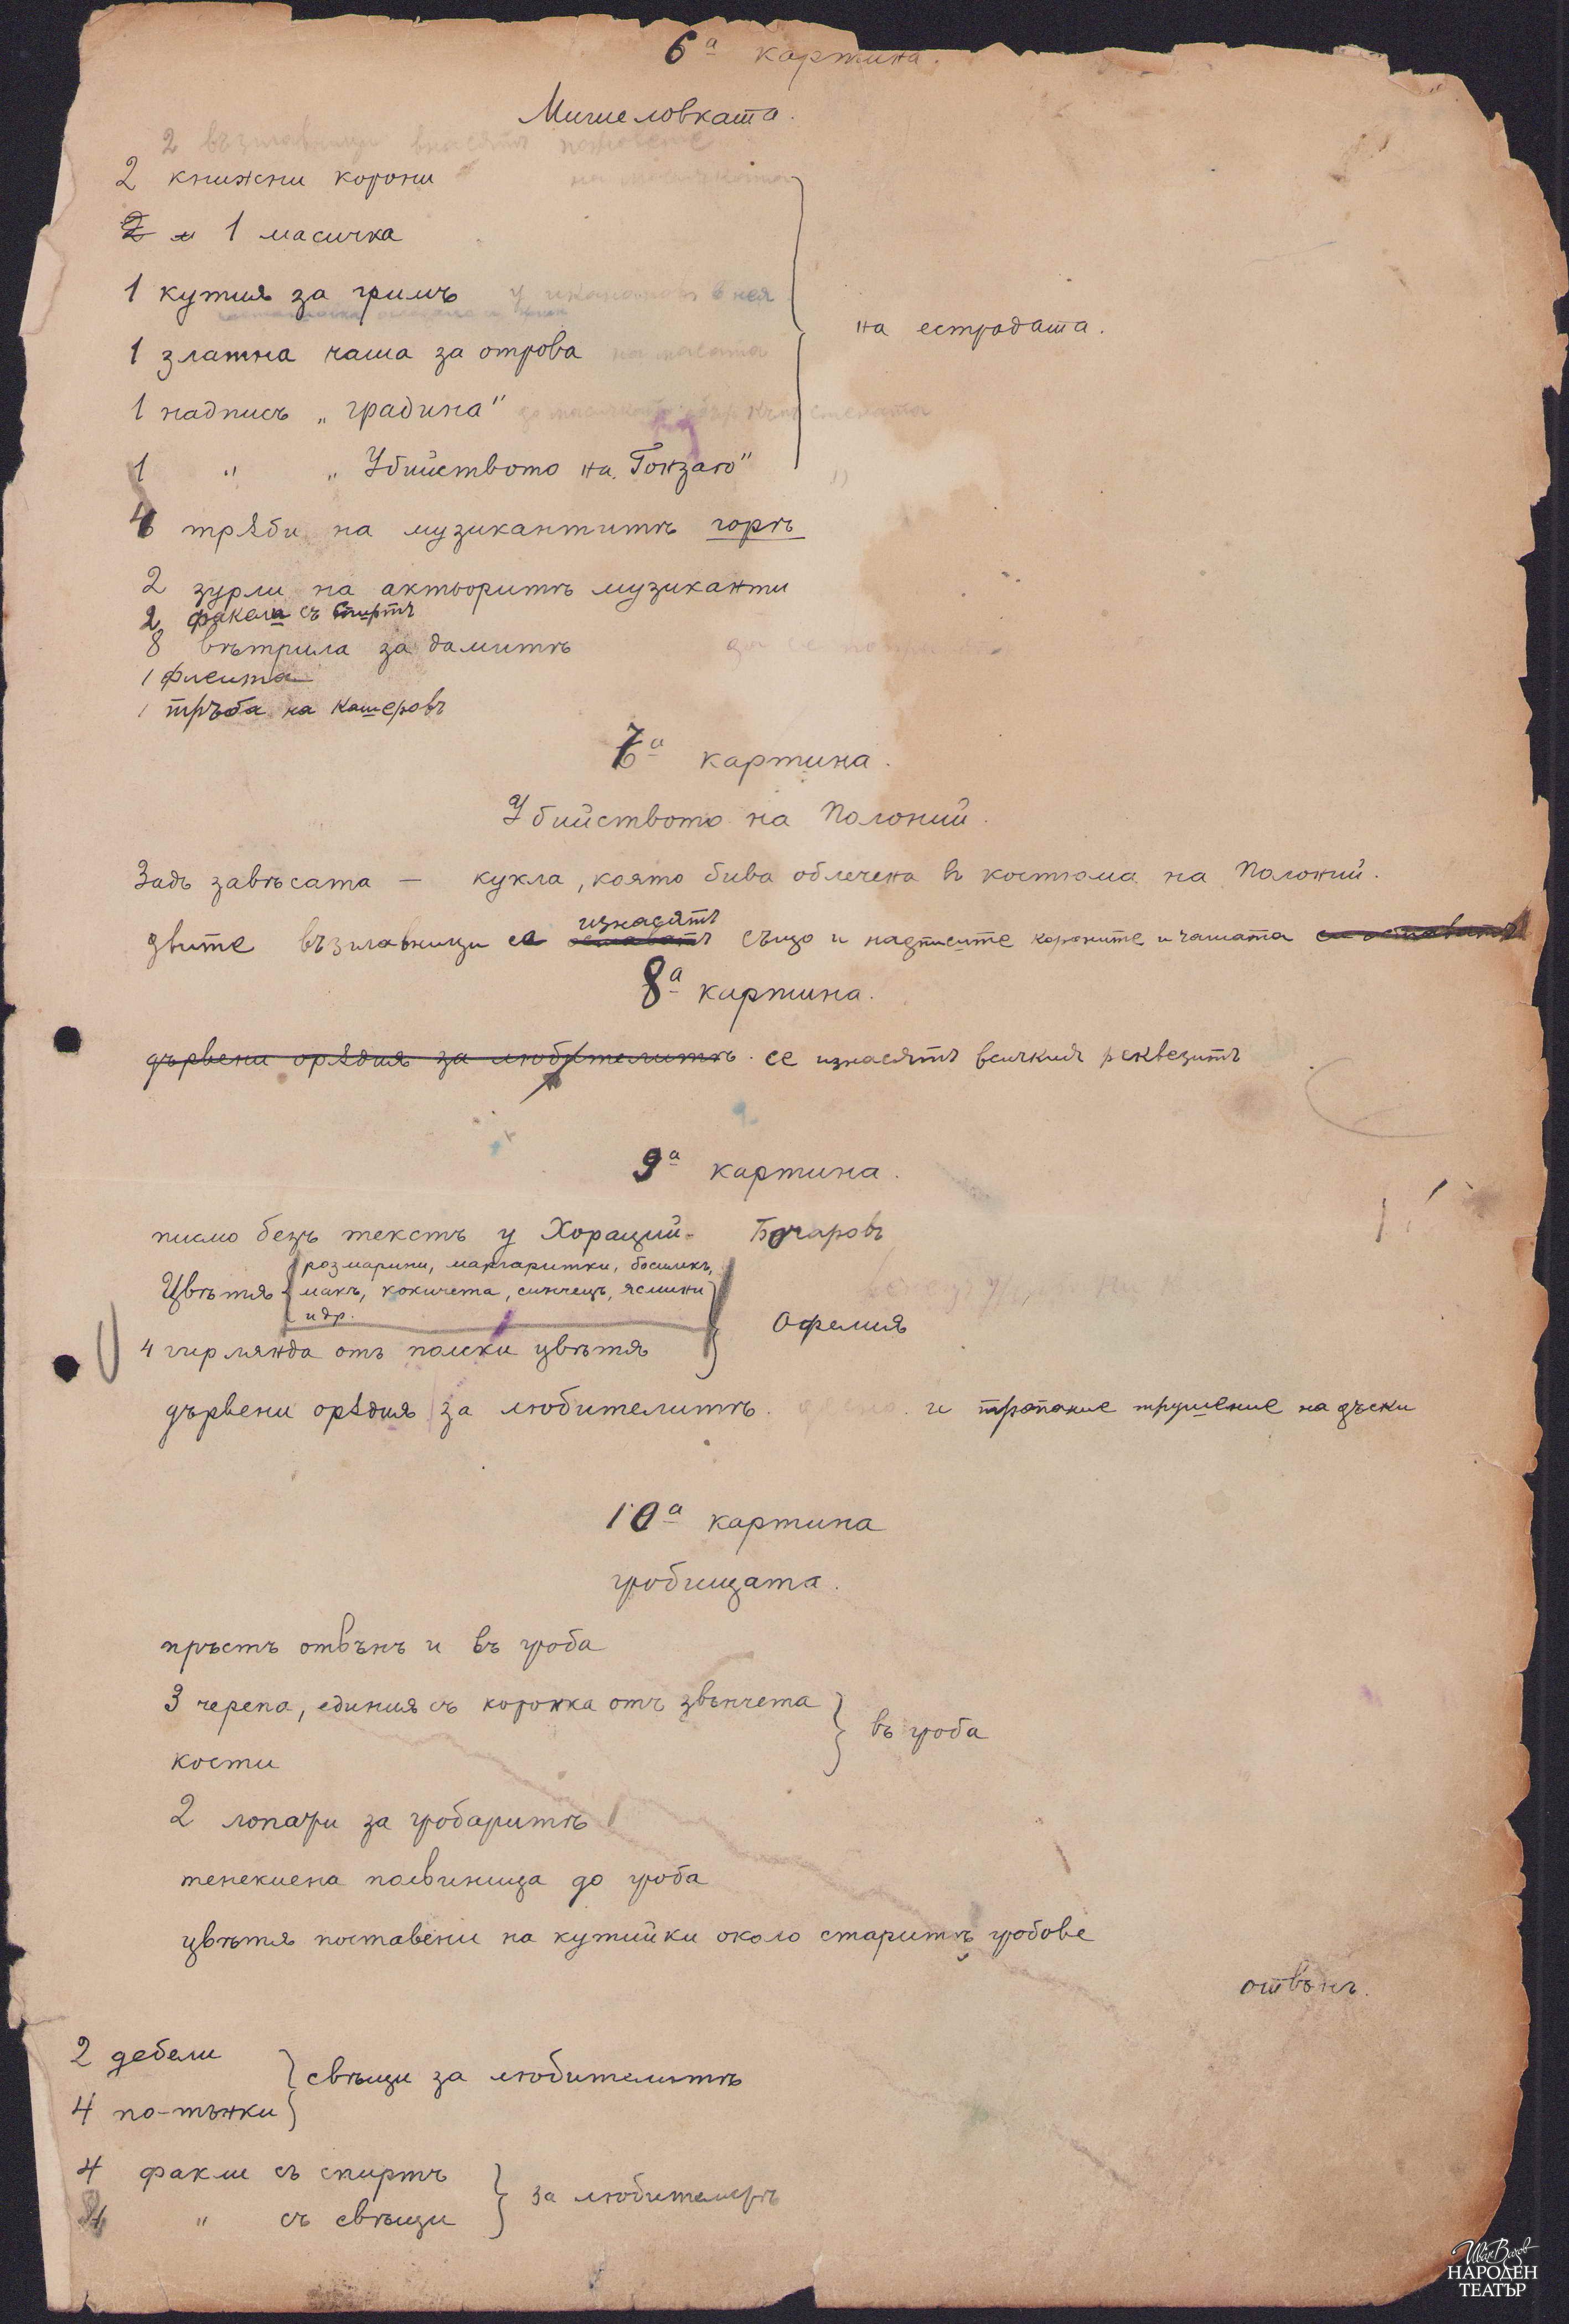 6а картина.
Мишеловката.
2 възглавници внасятъ
2 книжни корони
на масичката
2 м 1 масичка
1 кутия за гримъ у в нея
1 златна чаша за отрова на масата
на естрадата.
1 надписъ „градина“
1 " „Убийството на Гонзаго“
4 трѫби на музикантитѣ горѣ
2 зурли на актьоритѣ музиканти
2 факела съ спиртъ
8 вѣтрила за дамитѣ
1 флейта
1 тръба на Кашеровъ
7а картина.
Убийството на Полоний.
Задъ завѣсата — кукла, която бива облечена въ костюма на Полоний.
двите възглавници се оставатъ изнасятъ също и надписите короните и чашата се оставятъ
8а картина.
дървени орѫдия за любителитѣ. се изнасятъ всичкия реквезитъ
9а картина.
писмо безъ текстъ у Хораций - Бочаровъ
Цвѣтя { розмарини, маргаритки, босилекъ,
макъ, кокичета, синчецъ, ясмини
и др.
Офелия
4 гирлянда отъ полски цвѣтя
дървени орѫдия за любителитѣ. и тропание трушение на дъски
10а картина
гробищата.
пръсть отвънъ и въ гроба
3 черепа, единия съ коронка отъ звънчета
въ гроба
кости
2 лопати за гробаритѣ
тенекиена половница до гроба
цвѣтя поставени на кутийки около старитѣ гробове
отвънъ.
2 дебели
свѣщи за любителитѣ
4 по-тънки
4 факли съ спиртъ
за любителитѣ
4 " съ свѣщи
Иван Вазов
НАРОДЕН
ТЕАТЪР